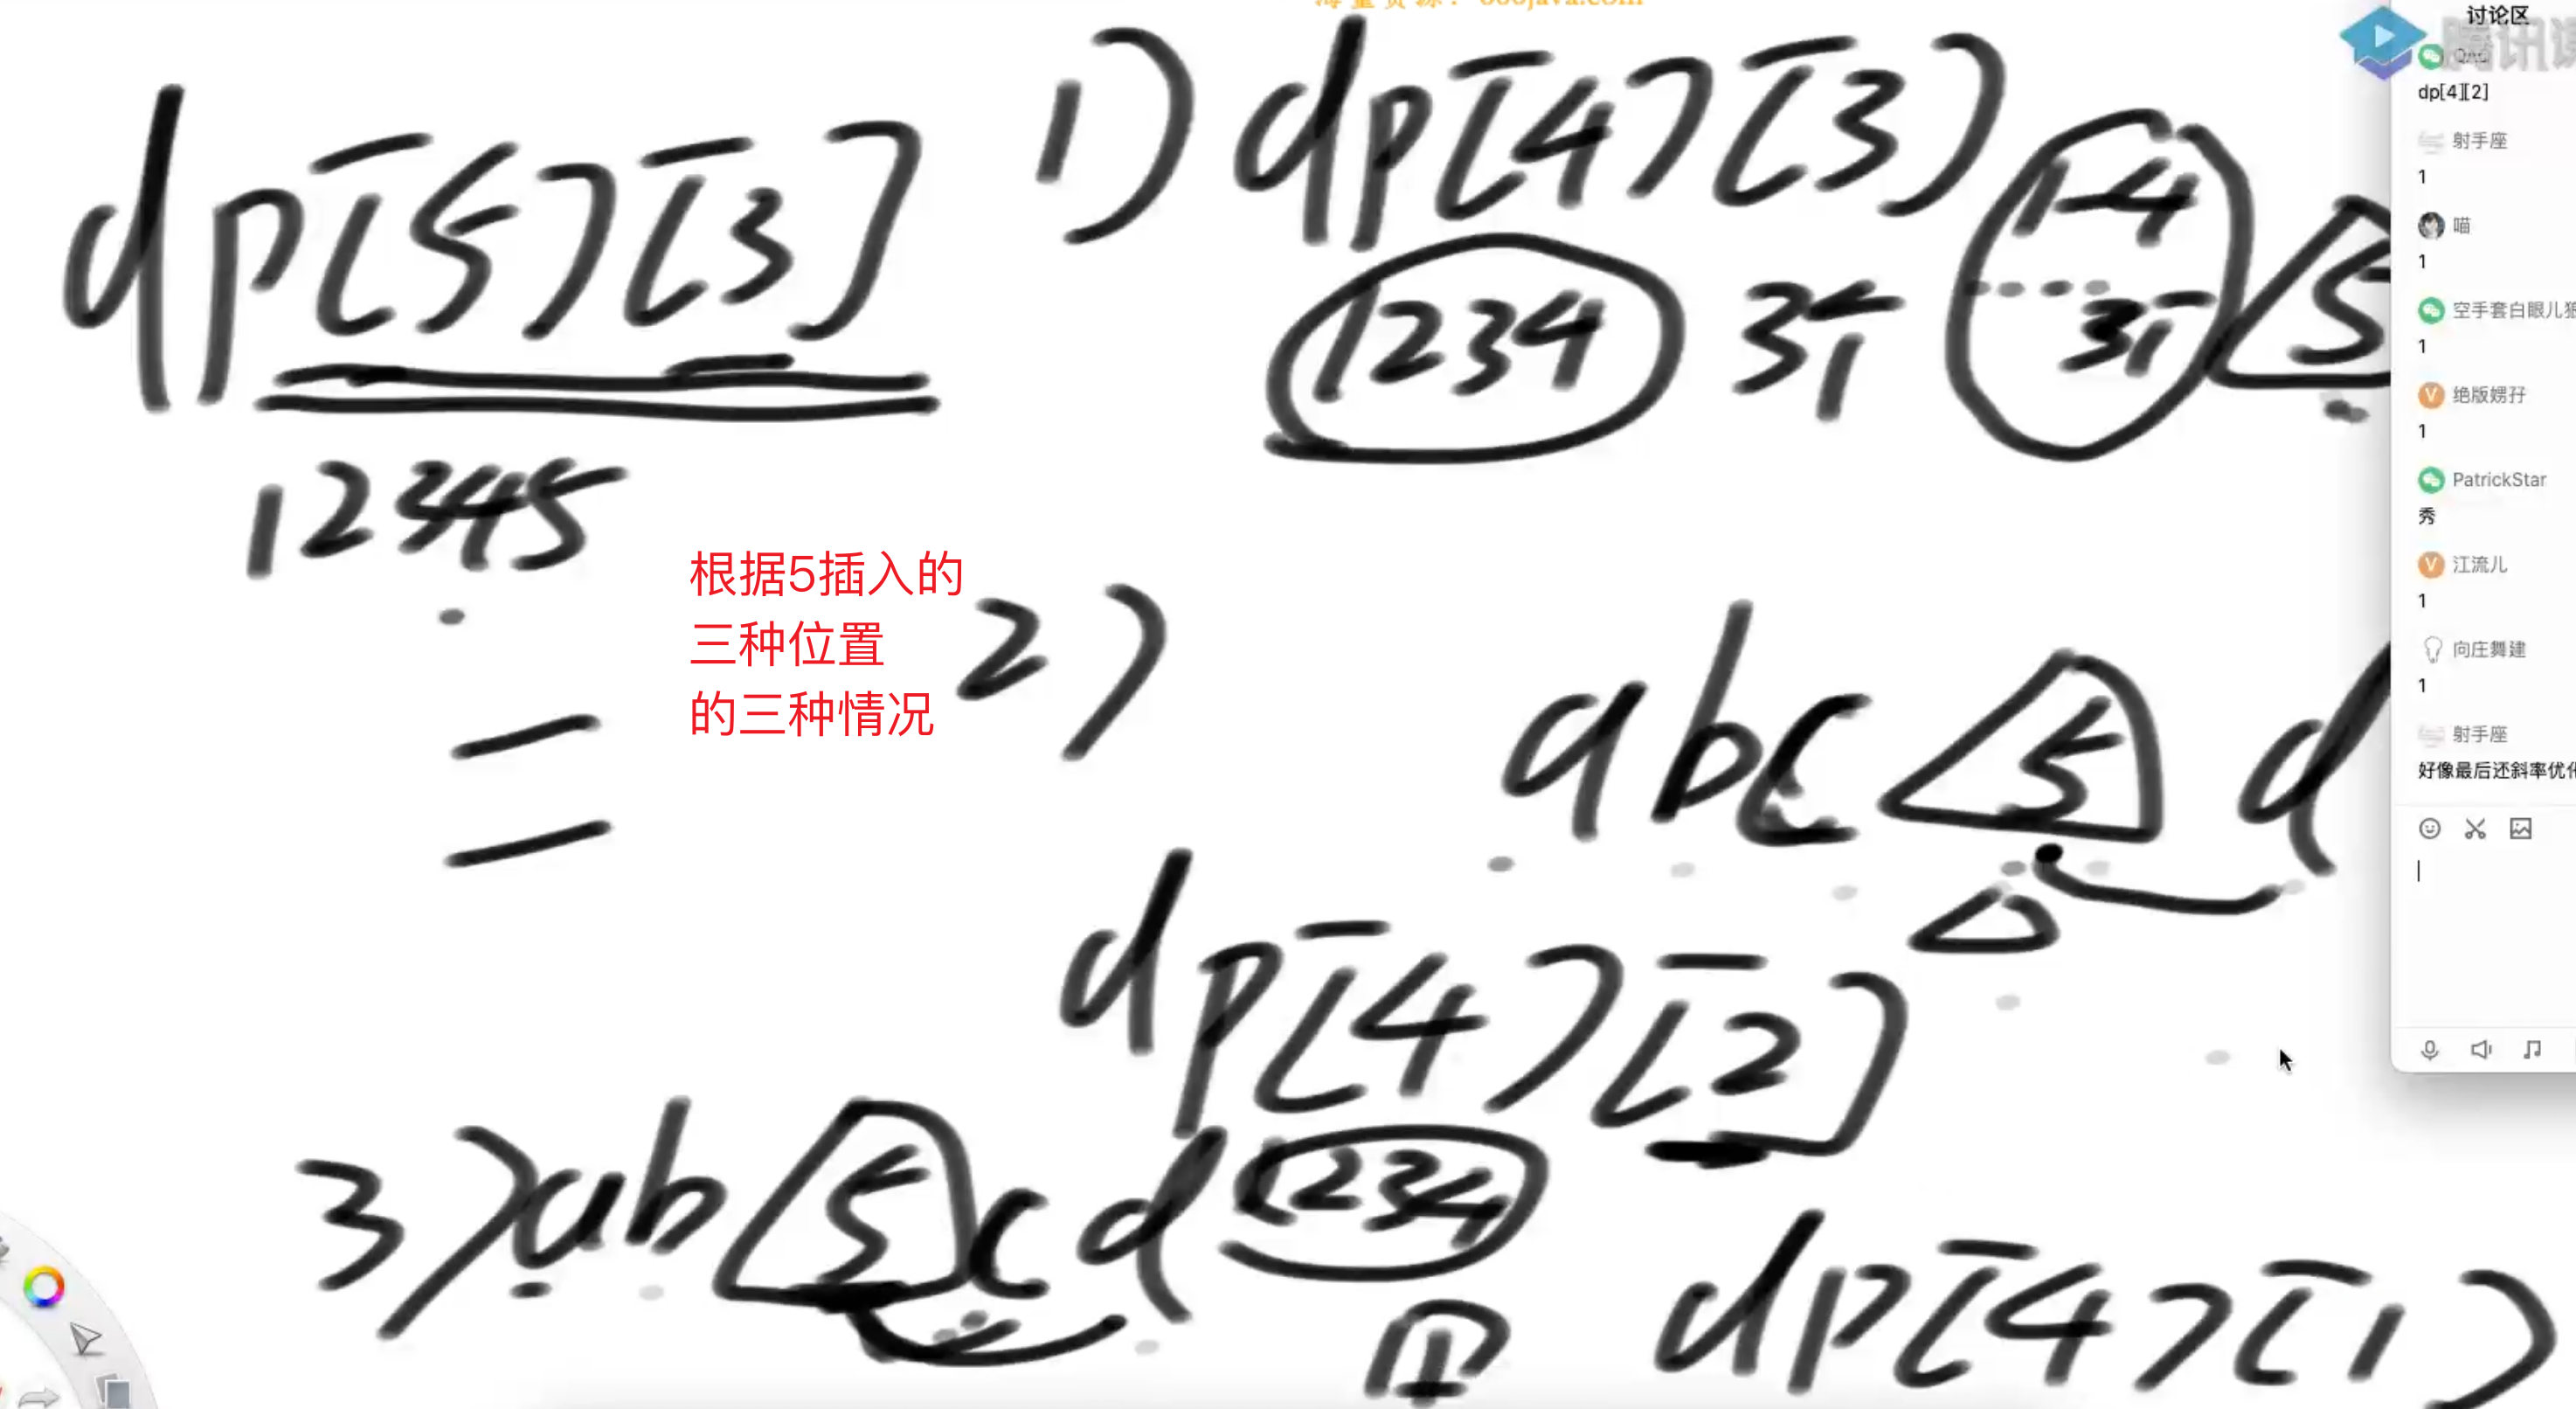 dp[5][3]
12345
=
根据5插入的
三种位置
的三种情况
1) dp[4][3]
1234 3个
1-4
3个 5
2)
abc 5 d
dp[4][2]
1234
3) ab 5 cd
dp[4][1]
讨论区
dp[4][2]
射手座
1
喵
1
空手套白眼儿狼
1
绝版娚孖
1
PatrickStar
秀
江流儿
1
向庄舞建
1
射手座
好像最后还斜率优化